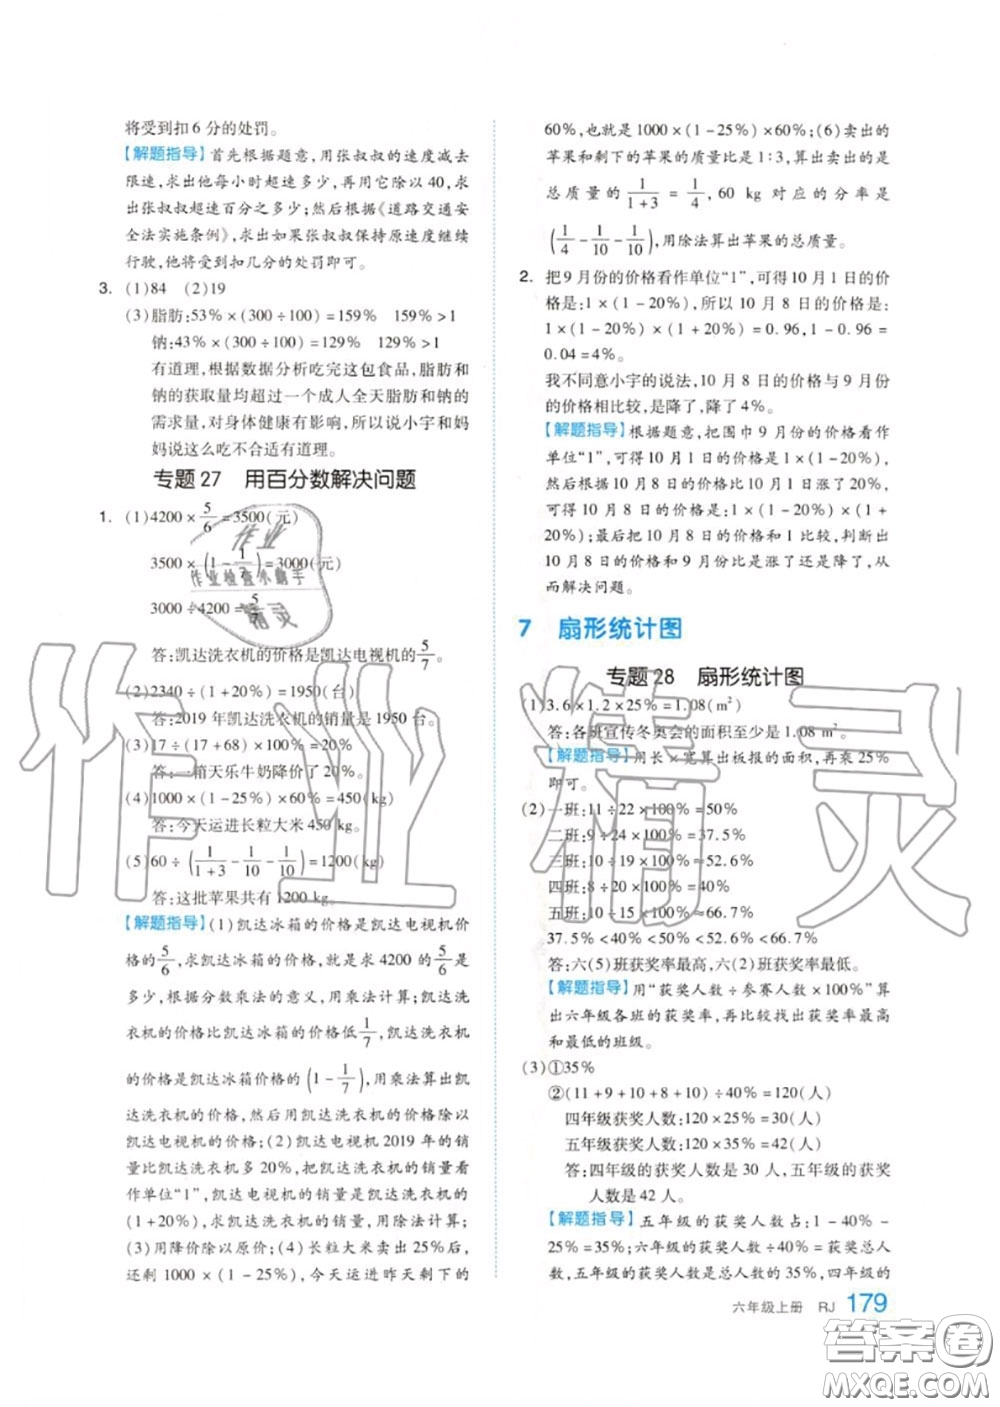 将受到扣6分的处罚。
【解题指导】首先根据题意,用张叔叔的速度减去
限速,求出他每小时超速多少,再用它除以40,求
出张叔叔超速百分之多少;然后根据《道路交通安
全法实施条例》,求出如果张叔叔保持原速度继续
行驶,他将受到扣几分的处罚即可。
3. (1)84 (2)19
(3)脂肪:53%×(300÷100)=159% 159%>1
钠:43%×(300÷100)=129% 129%>1
有道理,根据数据分析吃完这包食品,脂肪和
钠的获取量均超过一个成人全天脂肪和钠的
需求量,对身体健康有影响,所以说小宇和妈
妈说这么吃不合适有道理。
专题27 用百分数解决问题
1. (1)4200×5/6=3500(元)
3500×(1-1/7)=3000(元)
3000÷4200=5/7
答:凯达洗衣机的价格是凯达电视机的5/7。
(2)2340÷(1+20%)=1950(台)
答:2019年凯达洗衣机的销量是1950台。
(3)17÷(17+68)×100%=20%
答:一箱天乐牛奶降价了20%。
(4)1000×(1-25%)×60%=450(kg)
答:今天运进长粒大米450 kg。
(5)60÷(1/(1+3)-1/10-1/10)=1200(kg)
答:这批苹果共有1200 kg。
【解题指导】(1)凯达冰箱的价格是凯达电视机价
格的5/6,求凯达冰箱的价格,就是求4200的5/6是
多少,根据分数乘法的意义,用乘法计算;凯达洗
衣机的价格比凯达冰箱的价格低1/7,凯达洗衣机
的价格是凯达冰箱价格的(1-1/7),用乘法算出凯
达洗衣机的价格,然后用凯达洗衣机的价格除以
凯达电视机的价格;(2)凯达电视机2019年的销
量比凯达洗衣机多20%,把凯达洗衣机的销量看
作单位“1”,凯达电视机的销量是凯达洗衣机的
(1+20%),求凯达洗衣机的销量,用除法计算;
(3)用降价除以原价;(4)长粒大米卖出25%后,
还剩1000×(1-25%),今天运进昨天剩下的
60%,也就是1000×(1-25%)×60%;(6)卖出的
苹果和剩下的苹果的质量比是1:3,算出卖出的是
总质量的1/(1+3)=1/4,60 kg对应的分率是
(1/4-1/10-1/10),用除法算出苹果的总质量。
2. 把9月份的价格看作单位“1”,可得10月1日的价
格是:1×(1-20%),所以10月8日的价格是:
1×(1-20%)×(1+20%)=0.96,1-0.96=
0.04=4%。
我不同意小宇的说法,10月8日的价格与9月份
的价格相比较,是降了,降了4%。
【解题指导】根据题意,把围巾9月份的价格看作
单位“1”,可得10月1日的价格是1×(1-20%),
然后根据10月8日的价格比10月1日涨了20%,
可得10月8日的价格是1×(1-20%)×(1+
20%);最后把10月8日的价格和1比较,判断出
10月8日的价格和9月份比是涨了还是降了,从
而解决问题。
7 扇形统计图
专题28 扇形统计图
(1)3.6×1.2×25%=1.08(m²)
答:各班宣传冬奥会的面积至少是1.08 m²。
【解题指导】用长×宽算出板报的面积,再乘25%
即可。
(2)一班:11÷22×100%=50%
二班:9÷24×100%=37.5%
三班:10÷19×100%≈52.6%
四班:8÷20×100%=40%
五班:10÷15×100%≈66.7%
37.5%<40%<50%<52.6%<66.7%
答:六(5)班获奖率最高,六(2)班获奖率最低。
【解题指导】用“获奖人数÷参赛人数×100%”算
出六年级各班的获奖率,再比较找出获奖率最高
和最低的班级。
(3)①35%
②(11+9+10+8+10)÷40%=120(人)
四年级获奖人数:120×25%=30(人)
五年级获奖人数:120×35%=42(人)
答:四年级的获奖人数是30人,五年级的获奖
人数是42人。
【解题指导】五年级的获奖人数占:1-40%-
25%=35%;六年级的获奖人数÷40%=获奖总人
数,五年级的获奖人数是总人数的35%,四年级的
六年级上册 RJ 179
作业
作业检查小助手
精灵
作业精灵
答案圈
MXQE.COM